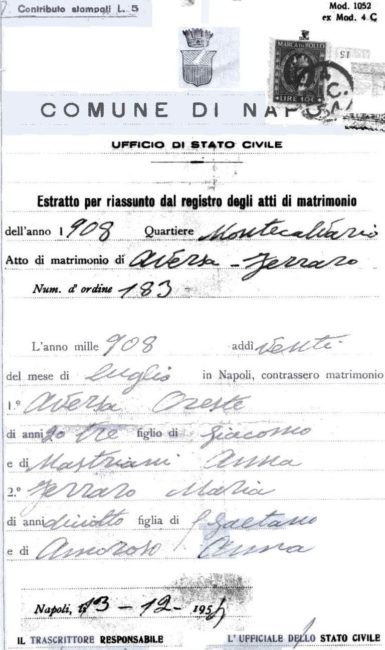 Contributo stampati L. 5
Mod. 1052
ex Mod. 4 C
MARCA DA BOLLO
LIRE 100
COMUNE DI NAPO
UFFICIO DI STATO CIVILE
Estratto per riassunto dal registro degli atti di matrimonio
dell'anno 1908 Quartiere Montecalvario
Atto di matrimonio di Aversa - Ferraro
Num. d' ordine 183
L'anno mille 908 addì venti
del mese di luglio in Napoli, contrassero matrimonio
1.º Aversa Oreste
di anni 20 tre figlio di Giacomo
e di Mastriani Anna
2.º Ferraro Maria
di anni diciotto figlia di Gaetano
e di Amoroso Anna
Napoli, 13 - 12 - 195
IL TRASCRITTORE RESPONSABILE
L' UFFICIALE DELLO STATO CIVILE